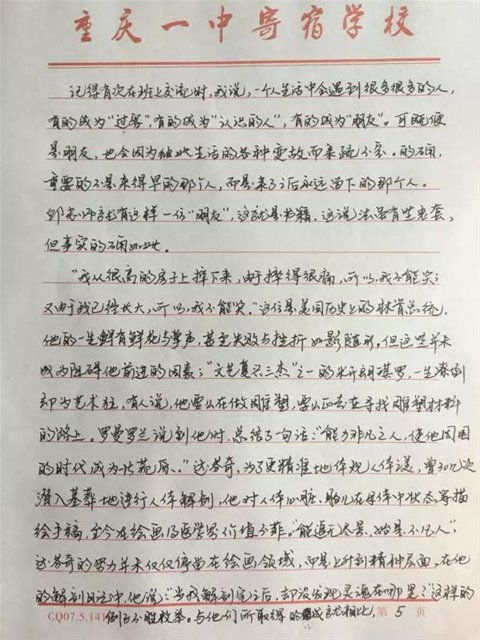 重庆一中寄宿学校
记得有次在班上交流时,我说,一个人生活中会遇到很多很多的人,
有的成为“过客”,有的成为“认识的人”,有的成为“朋友”。可既便
是朋友,也会因为彼此生活的各种变故而来疏不亲。的确,
重要的不是来得早的那个人,而是来了后永远留下的那个人。
老师就有这样一位“朋友”,这就是书籍。这说法虽有些老套,
但事实的确如此。
“我从很高的房子上摔下来,由于摔得很痛,所以我不能笑;
又由于我已经长大,所以我不能哭。”这位是美国历史上的林肯总统,
他的一生鲜有鲜花与掌声,甚至失败与挫折如影随形,但这些并未
成为阻碍他前进的因素;“文艺复兴三杰”之一的米开朗基罗,一生潦倒
却为艺术狂,有人说,他要么在做雕塑,要么正在寻找雕塑材料
的路上。罗曼罗兰说到他时,总结了一句话:“能力非凡之人,使他周围
的时代成为一片荒原。”达芬奇,为了更精准地体现人体美,曾30几次
潜入墓葬地进行人体解剖,他对人体心脏,胎儿在母体中状态等描
绘手稿,至今在绘画及医学界价值不菲。“能追无尽景,始是不凡人”,
达芬奇的努力并未仅仅停留在绘画领域,而是上升到精神层面,在他
的解剖日记中,他说:“当我解剖完之后,却没发现灵魂在哪里?”这样的
例子不胜枚举。与他们所取得的成就相比,
CQ07.5.141 5 页